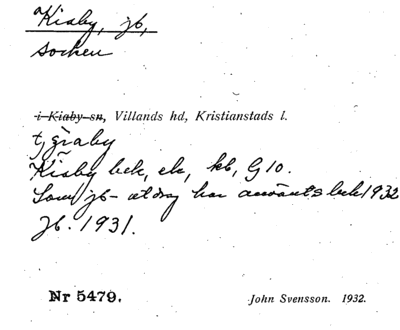 Kiaby, jb,
socken
i Kiaby sn, Villands hd, Kristianstads l.
Kiaby bek, ek, kb, G 10.
Som jb-utdrag har använts bek 1932
Jb. 1931.
Nr 5479.
John Svensson. 1932.